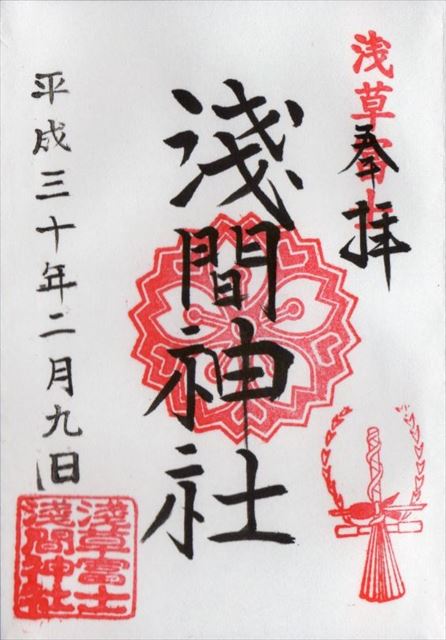 浅草富士
奉拝
淺間神社
平成三十年二月九日
浅草富士
淺間神社